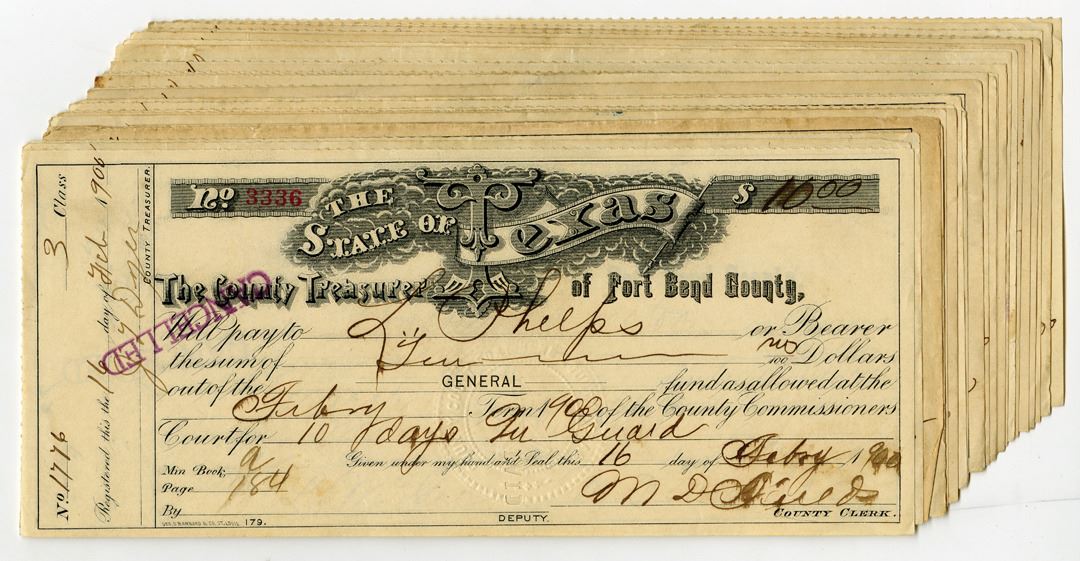 No 1776 Registered this the 16 day of Feb 1900 3 Class
COUNTY TREASURER.
CANCELLED
No 3336 THE STATE OF Texas $ 10 00
The County Treasurer of Fort Bend County,
Will pay to L. Phelps or Bearer
the sum of Ten no/100 Dollars
out of the GENERAL fund as allowed at the
Febry Term 1900 of the County Commissioners
Court for 10 days Guard
Given under my hand and Seal this 16 day of Febry 1900
Min Book, a
Page 184
By DEPUTY. COUNTY CLERK.
179.